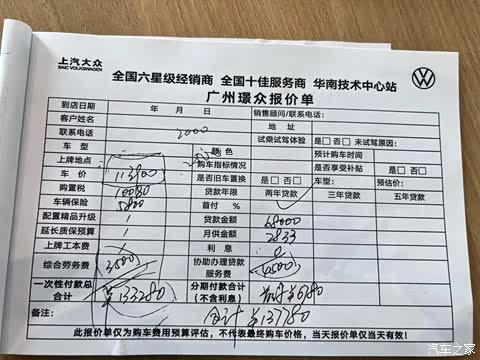 上汽大众
SAIC VOLKSWAGEN
全国六星级经销商 全国十佳服务商 华南技术中心站
广州璟众报价单
到店日期 年 月 日 销售顾问/联系电话:
客户姓名 地 址
联系电话 2000 试乘试驾体验 □是 □否 未试驾原因:
车 型 颜 色 预计购车时间
上牌地点 购车指标情况 是否享受补贴 □是 □否
车 价 113900 是否旧车置换 □是 □否 车型: 预估价:
购置税 10080 贷款年限 两年贷款 三年贷款 五年贷款
车辆保险 5800 首付 %
配置精品升级 / 贷款金额 68000
延长质保预算 / 月供金额 2833
上牌工本费 / 利 息 0
综合劳务费 3500 协助办理贷款服务费 4500
一次性付款总合计 ¥133280 分期付款合计(不含利息)
备注: 合计 ¥137780
此报价单仅为购车费用预算评估,不代表最终购车价格,当天报价单仅当天有效!
汽车之家